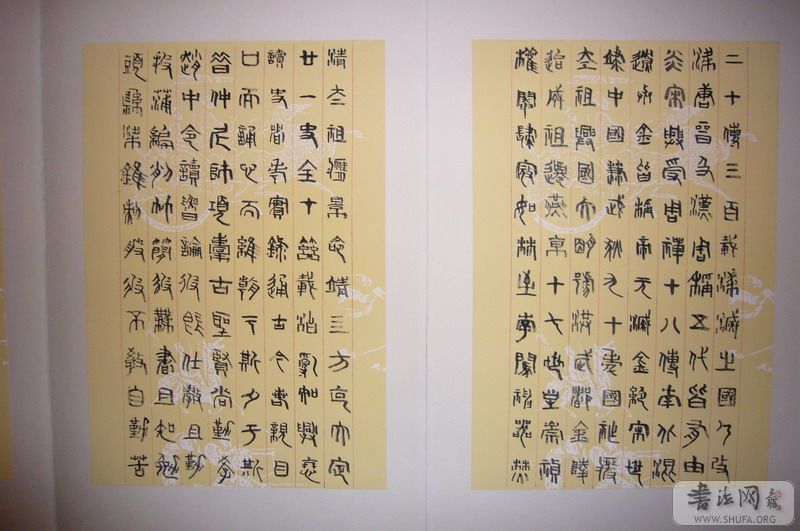 二十傳三百載梁滅之國乃改
梁唐晉及漢周稱五代皆有由
炎宋興受周禪十八傳南北混
遼與金皆稱帝元滅金絕宋世
中國兼戎狄九十年國祚廢
太祖興國大明號洪武都金陵
迨成祖遷燕京十七世至崇禎
權閹肆寇如林至李闖神器焚
清太祖膺景命靖四方克大定
廿一史全在茲載治亂知興衰
讀史者考實錄通古今若親目
口而誦心而維朝于斯夕于斯
昔仲尼師項橐古聖賢尚勤學
趙中令讀魯論彼既仕學且勤
披蒲編削竹簡彼無書且知勉
頭懸梁錐刺股彼不教自勤苦
书法网
WWW.SHUFA.ORG